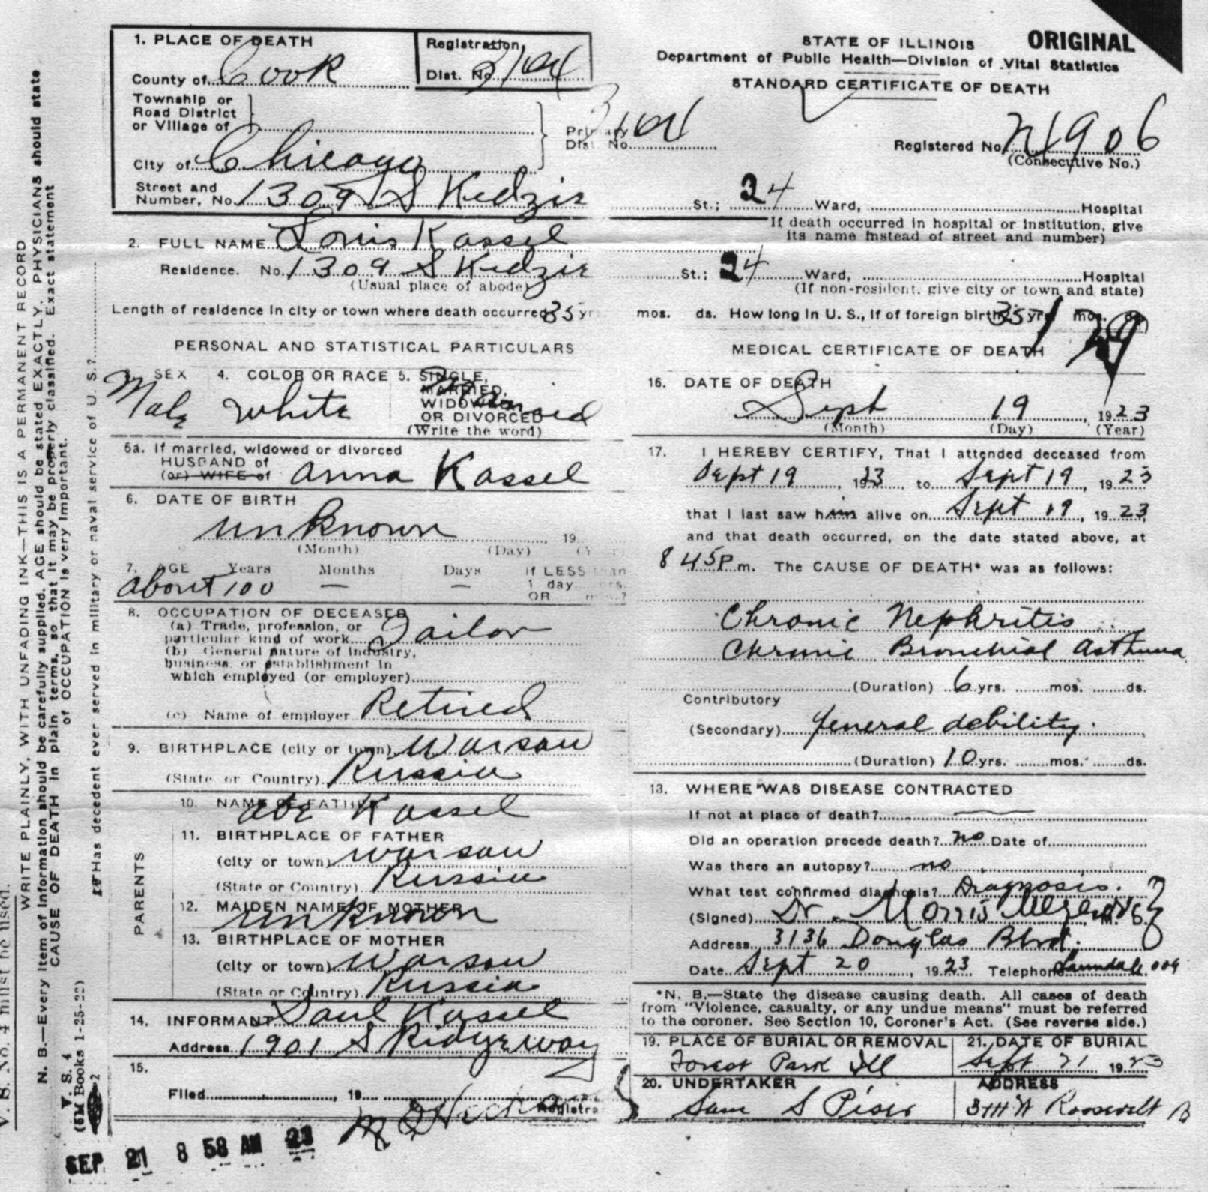 1. PLACE OF DEATH
County of Cook
Registration Dist. No. 3104
Township or
Road District
or Village of
Primary Dist. No. 3104
City of Chicago
Street and
Number, No. 1309 S Kedzie
STATE OF ILLINOIS
ORIGINAL
Department of Public Health—Division of Vital Statistics
STANDARD CERTIFICATE OF DEATH
Registered No. 21906
(Consecutive No.)
St.; 24 Ward, Hospital
If death occurred in hospital or institution, give
its name instead of street and number)
2. FULL NAME Louis Kassel
Residence. No. 1309 S Kedzie
(Usual place of abode)
St.; 24 Ward, Hospital
(If non-resident, give city or town and state)
Length of residence in city or town where death occurred 35 yrs mos. ds. How long in U. S., if of foreign birth? 35 yrs mos. ds
PERSONAL AND STATISTICAL PARTICULARS
3. SEX Male
4. COLOR OR RACE White
5. SINGLE,
MARRIED,
WIDOWED
OR DIVORCED
(Write the word)
6a. If married, widowed or divorced
HUSBAND of
(or) WIFE of Anna Kassel
6. DATE OF BIRTH
unknown 19
(Month) (Day)
7. AGE Years Months Days If LESS than
1 day hrs.
OR
about 100 — —
8. OCCUPATION OF DECEASED
(a) Trade, profession, or
particular kind of work Tailor
(b) General nature of industry,
business, or establishment in
which employed (or employer)
(c) Name of employer Retired
9. BIRTHPLACE (city or town) Warsaw
(State or Country) Russia
PARENTS
10. NAME OF FATHER Abe Kassel
11. BIRTHPLACE OF FATHER
(city or town) Warsaw
(State or Country) Russia
12. MAIDEN NAME OF MOTHER unknown
13. BIRTHPLACE OF MOTHER
(city or town) Warsaw
(State or Country) Russia
14. INFORMANT Saul Kassel
Address 1901 S Ridgeway
15.
Filed 19
Registrar
SEP 21 8 58 AM 23
MEDICAL CERTIFICATE OF DEATH
16. DATE OF DEATH
Sept 19 1923
(Month) (Day) (Year)
17. I HEREBY CERTIFY, That I attended deceased from
Sept 19, 1923 to Sept 19, 1923
that I last saw him alive on Sept 19, 1923,
and that death occurred, on the date stated above, at
8 45 P m. The CAUSE OF DEATH* was as follows:
Chronic Nephritis
Chronic Bronchial Asthma
(Duration) 6 yrs. mos. ds.
Contributory
(Secondary) general debility.
(Duration) 10 yrs. mos. ds.
18. WHERE WAS DISEASE CONTRACTED
If not at place of death?
Did an operation precede death? no Date of
Was there an autopsy? no
What test confirmed diagnosis? Diagnosis.
(Signed) Dr. Morris
Address 3136 Douglas Blvd.
Date Sept 20, 1923 Telephone Lawndale
*N. B.—State the disease causing death. All cases of death
from "Violence, casualty, or any undue means" must be referred
to the coroner. See Section 10, Coroner's Act. (See reverse side.)
19. PLACE OF BURIAL OR REMOVAL
Forest Park Ill
21. DATE OF BURIAL
Sept 21 1923
20. UNDERTAKER
Sam S Piser
ADDRESS
Roosevelt
V. S. No. 4 must be used.
WRITE PLAINLY, WITH UNFADING INK—THIS IS A PERMANENT RECORD
N. B.—Every item of information should be carefully supplied. AGE should be stated EXACTLY. PHYSICIANS should state
CAUSE OF DEATH in plain terms, so that it may be properly classified. Exact statement
of OCCUPATION is very important.
V. S. 4
(5M Books 1-25-22)
Has decedent ever served in military or naval service of U. S.?